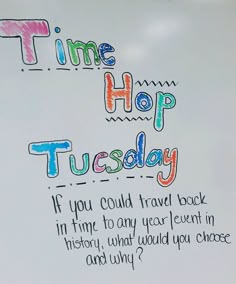 Time
Hop
Tuesday
If you could travel back
in time to any year/event in
history, what would you choose
and why?